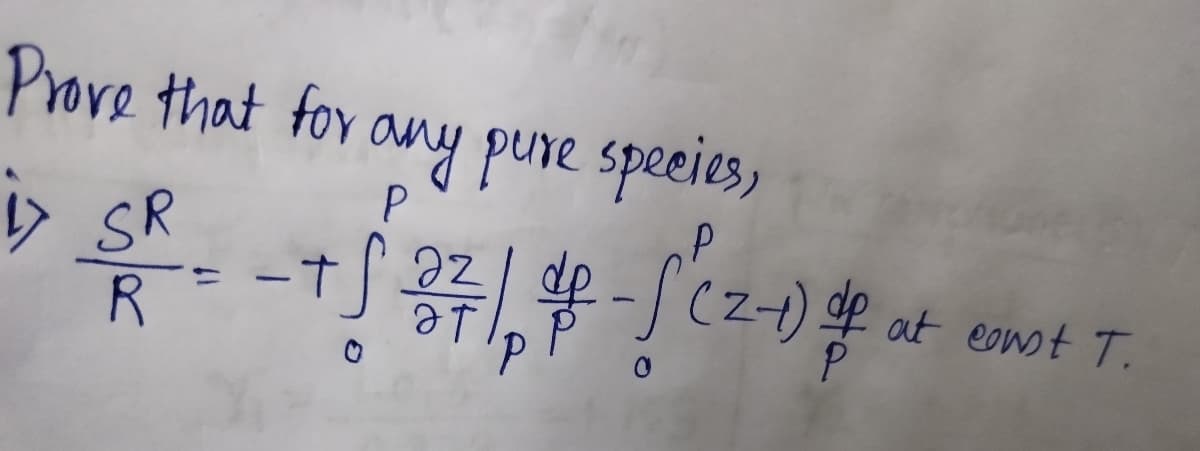 Prove that for any pure species,
i> S^R/R = -T ∫_0^P ∂Z/∂T|_P dp/P - ∫_0^P (Z-1) dp/P at const T.